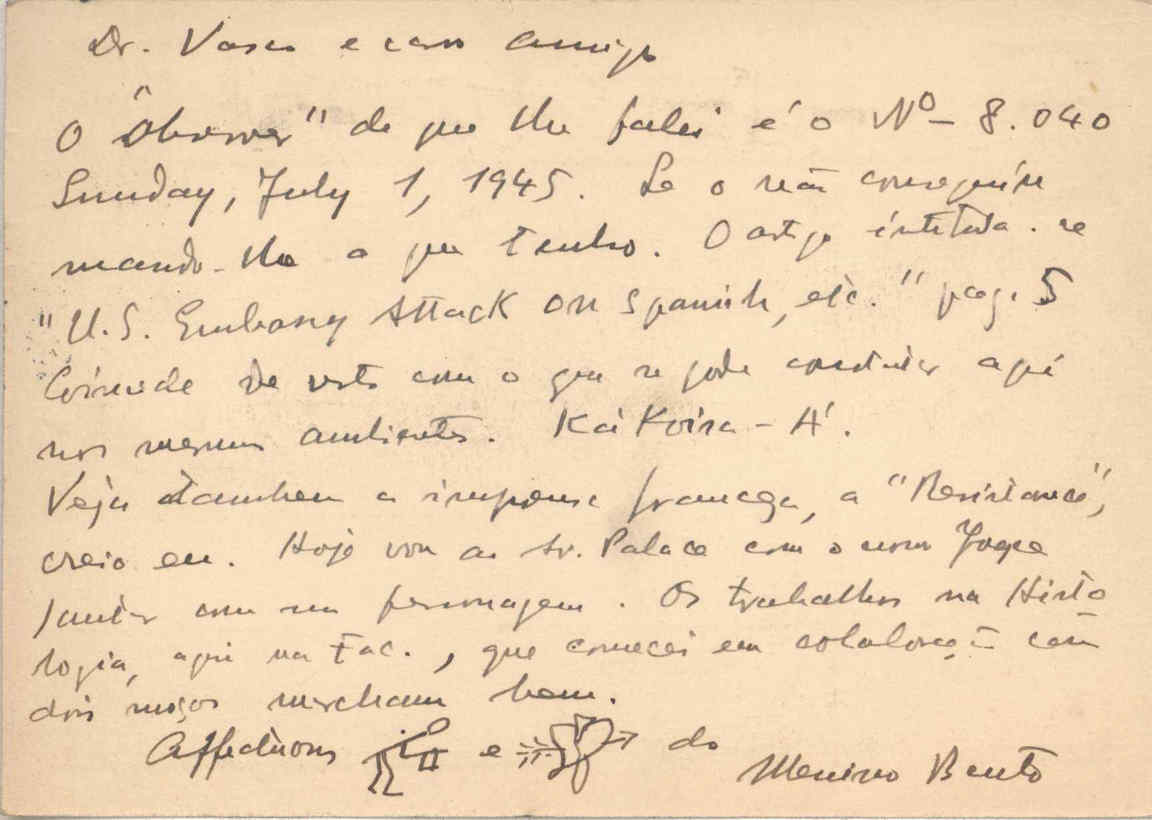 Dr. Vasco e caro amigo
O "Observer" de que lhe falei é o Nº - 8.040
Sunday, July 1, 1945. Se o não conseguir
mando-lhe o que tenho. O artigo intitula-se
"U.S. Embassy Attack on Spanish, etc." pag. 5
Coincide de resto com o que se pode constatar aqui
nos mesmos ambientes. Kákoira - A'.
Veja tambem a imprensa franceza, a "Resistance",
creio eu. Hoje vou ao Av. Palace com o nosso
jantar com um personagem. Os trabalhos na Histo
logia, aqui na Fac., que comecei em colaboração com
dois moços marcham bem.
Affectuoso e do
Menino Bento